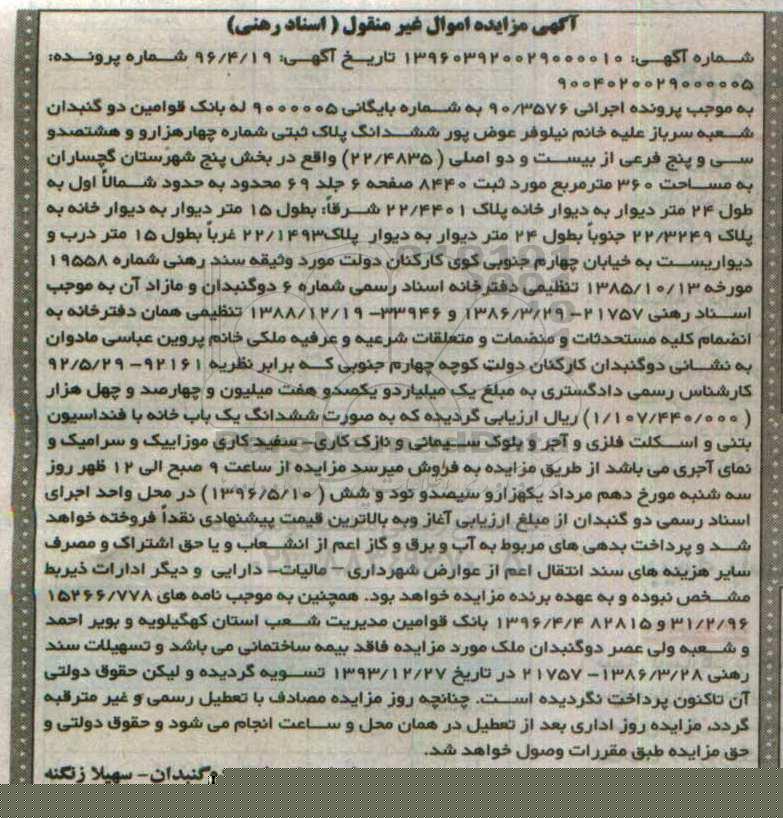 آگهی مزایده اموال غیر منقول ( اسناد رهنی)
شماره آگهی: ۱۳۹۶۰۳۹۲۰۰۲۹۰۰۰۰۱۰ تاریخ آگهی: ۹۶/۴/۱۹ شماره پرونده:
۹۰۰۴۰۲۰۰۲۹۰۰۰۰۰۵
به موجب پرونده اجرائی ۹۰/۳۵۷۶ به شماره بایگانی ۹۰۰۰۰۰۵ له بانک قوامین دو گنبدان
شعبه سرباز علیه خانم نیلوفر عوض پور ششدانگ پلاک ثبتی شماره چهارهزارو و هشتصدو
سی و پنج فرعی از بیست و دو اصلی ( ۲۲/۴۸۳۵) واقع در بخش پنج شهرستان گچساران
به مساحت ۳۶۰ مترمربع مورد ثبت ۸۴۴۰ صفحه ۶ جلد ۶۹ محدود به حدود شمالاً اول به
طول ۲۴ متر دیوار به دیوار خانه پلاک ۲۲/۴۴۰۱ شرقاً: بطول ۱۵ متر دیوار به دیوار خانه به
پلاک ۲۲/۳۲۴۹ جنوباً بطول ۲۴ متر دیوار به دیوار پلاک۲۲/۱۴۹۳ غرباً بطول ۱۵ متر درب و
دیواریست به خیابان چهارم جنوبی کوی کارکنان دولت مورد وثیقه سند رهنی شماره ۱۹۵۵۸
مورخه ۱۳۸۵/۱۰/۱۳ تنظیمی دفترخانه اسناد رسمی شماره ۶ دوگنبدان و مازاد آن به موجب
اسناد رهنی ۲۱۷۵۷- ۱۳۸۶/۳/۲۹ و ۳۳۹۴۶- ۱۳۸۸/۱۲/۱۹ تنظیمی همان دفترخانه به
انضمام کلیه مستحدثات و منضمات و متعلقات شرعیه و عرفیه ملکی خانم پروین عباسی مادوان
به نشانی دوگنبدان کارکنان دولت کوچه چهارم جنوبی که برابر نظریه ۹۲۱۶۱- ۹۲/۵/۲۹
کارشناس رسمی دادگستری به مبلغ یک میلیاردو یکصدو هفت میلیون و چهارصد و چهل هزار
( ۱/۱۰۷/۴۴۰/۰۰۰) ریال ارزیابی گردیده که به صورت ششدانگ یک باب خانه با فنداسیون
بتنی و اسکلت فلزی و آجر و بلوک سیمانی و نازک کاری- سفید کاری موزاییک و سرامیک و
نمای آجری می باشد از طریق مزایده به فروش میرسد مزایده از ساعت ۹ صبح الی ۱۲ ظهر روز
سه شنبه مورخ دهم مرداد یکهزارو سیصدو نود و شش ( ۱۳۹۶/۵/۱۰) در محل واحد اجرای
اسناد رسمی دو گنبدان از مبلغ ارزیابی آغاز وبه بالاترین قیمت پیشنهادی نقداً فروخته خواهد
شد و پرداخت بدهی های مربوط به آب و برق و گاز اعم از انشعاب و یا حق اشتراک و مصرف
سایر هزینه های سند انتقال اعم از عوارض شهرداری- مالیات- دارایی و دیگر ادارات ذیربط
مشخص نبوده و به عهده برنده مزایده خواهد بود. همچنین به موجب نامه های ۱۵۲۶۶/۷۷۸
۳۱/۲/۹۶ و ۸۲۸۱۵ ۱۳۹۶/۴/۴ بانک قوامین مدیریت شعب استان کهگیلویه و بویر احمد
و شعبه ولی عصر دوگنبدان ملک مورد مزایده فاقد بیمه ساختمانی می باشد و تسهیلات سند
رهنی ۱۳۸۶/۳/۲۸- ۲۱۷۵۷ در تاریخ ۱۳۹۳/۱۲/۲۷ تسویه گردیده و لیکن حقوق دولتی
آن تاکنون پرداخت نگردیده است. چنانچه روز مزایده مصادف با تعطیل رسمی و غیر مترقبه
گردد، مزایده روز اداری بعد از تعطیل در همان محل و ساعت انجام می شود و حقوق دولتی و
حق مزایده طبق مقررات وصول خواهد شد.
گنبدان- سهیلا زنگنه